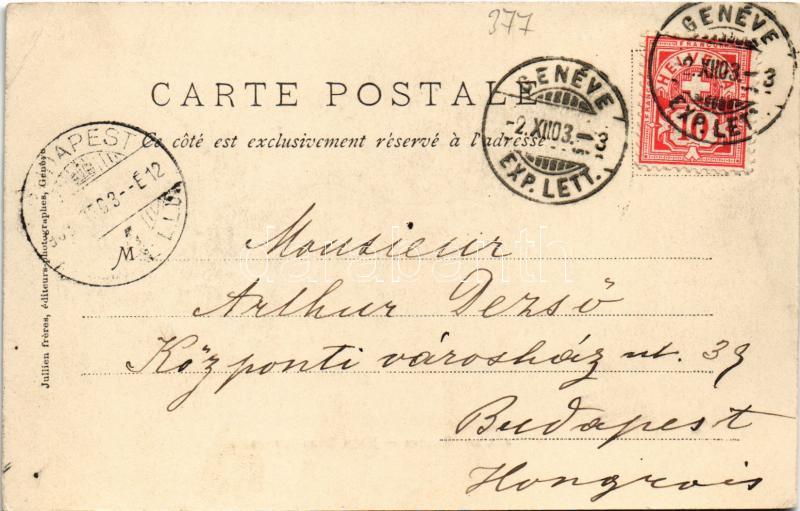 377
CARTE POSTALE
Ce côté est exclusivement réservé à l'adresse
GENÉVE
-2.XII.03.-11
EXP. LETT.
GENÉVE
2.XII.03.-11
EXP. LETT.
FRANCO
HELVETIA
10
BUDAPEST
M
Monsieur
Arthur Dezső
Központi városház ut. 39
Budapest
Hongrois
Jullien frères, éditeurs-photographes, Genève
darabanth